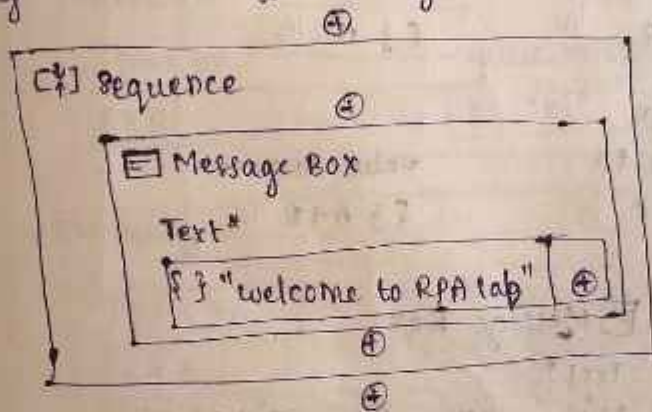 [‡] Sequence
Message Box
Text*
{ } "welcome to RPA lab"